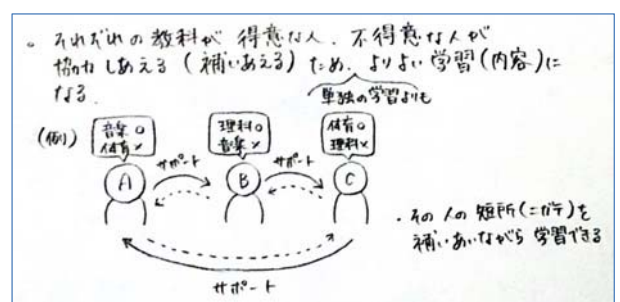 。それぞれの教科が得意な人、不得意な人が
協力しあえる(補いあえる)ため、よりよい学習(内容)に
なる.
単独の学習よりも
(例)
音楽○
体育×
理科○
音楽×
体育○
理科×
A
サポート
B
サポート
C
サポート
・その人の短所(ニガテ)を
補いあいながら学習できる